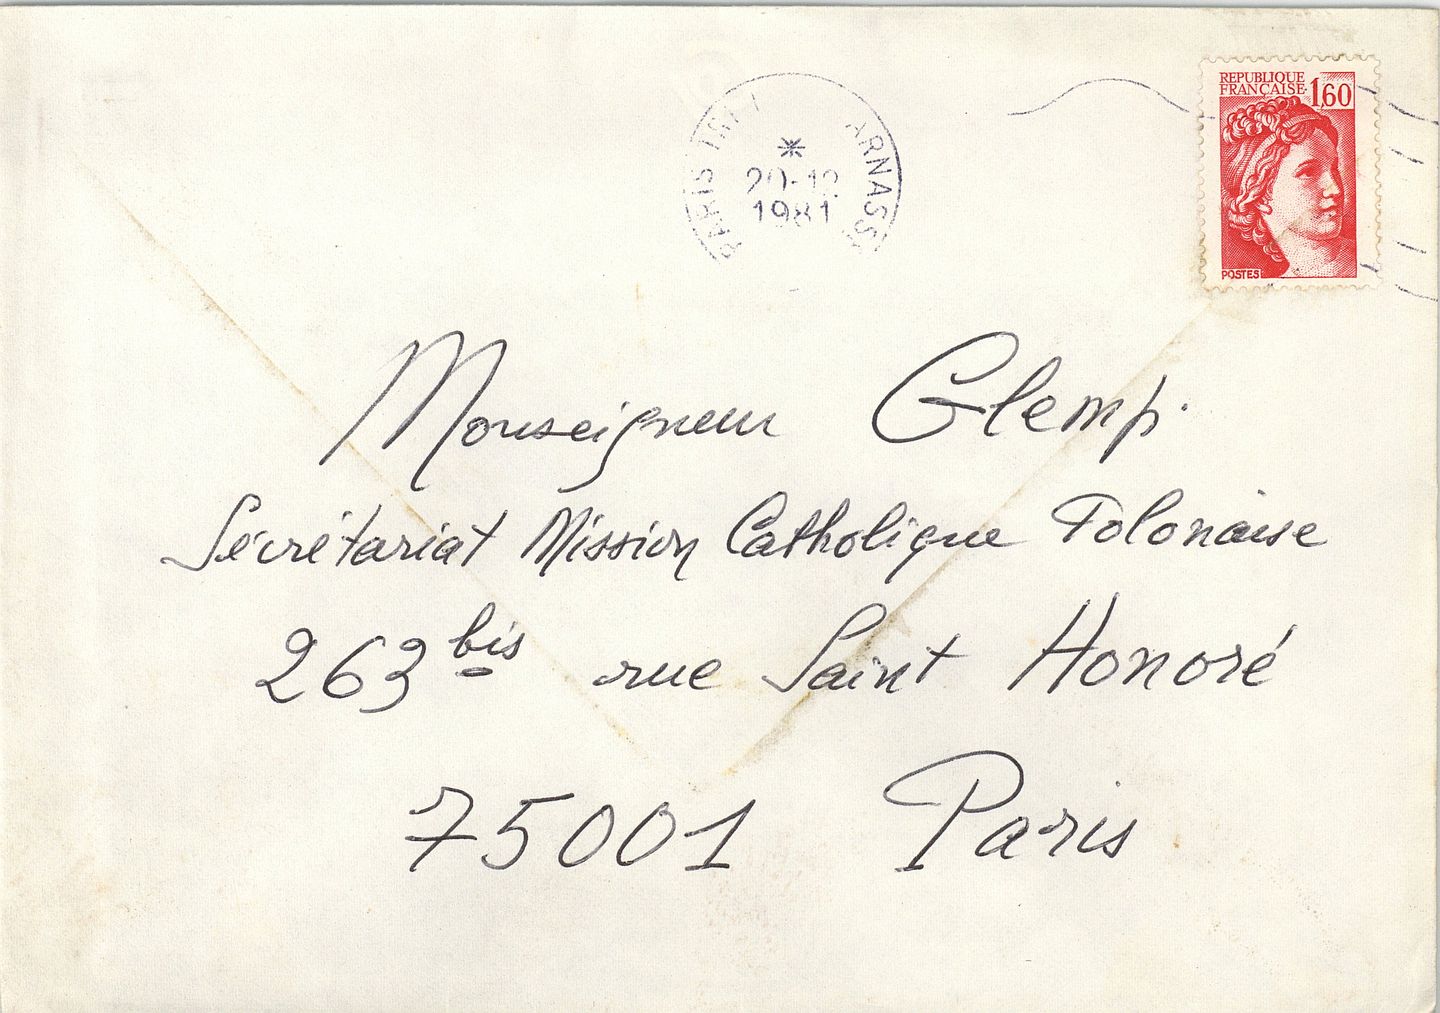 REPUBLIQUE
FRANÇAISE
1,60
POSTES
PARIS TRI
ARNASS
20-12
1981
Monseigneur Glemp.
Sécrétariat Mission Catholique Polonaise
263 bis rue Saint Honoré
75001 Paris